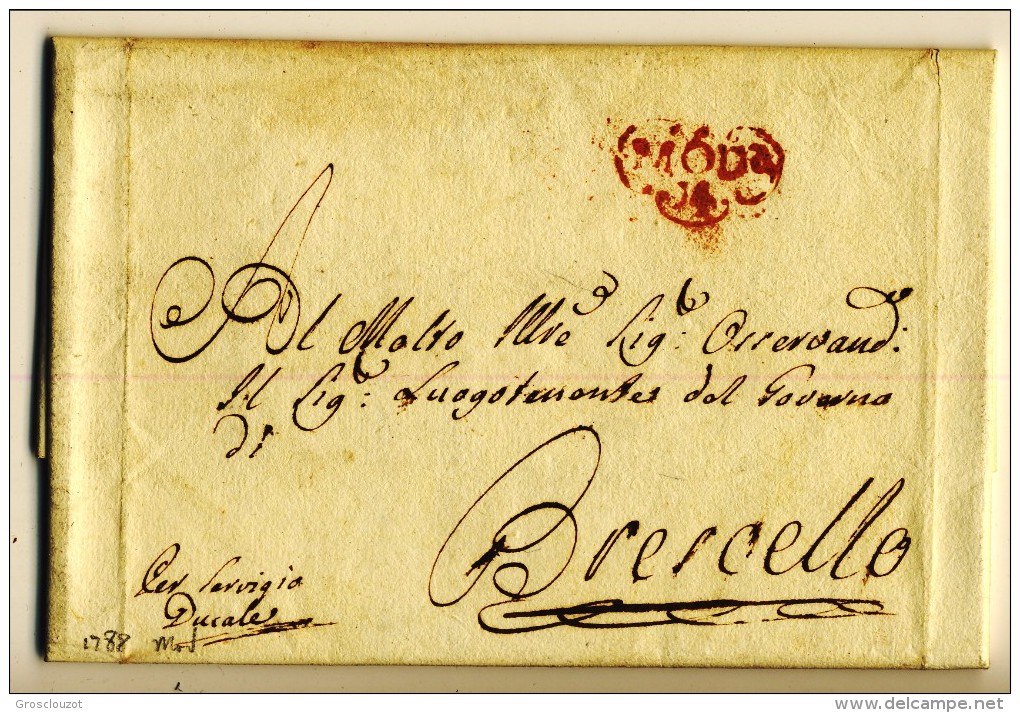 Moda
Al Molto Illre Sigr: Osservand:
Il Sigr: Luogotenente del Governo
di
Brescello
Per Servigio
Ducale
1788 Mod
Grosclouzot
www.delcampe.net